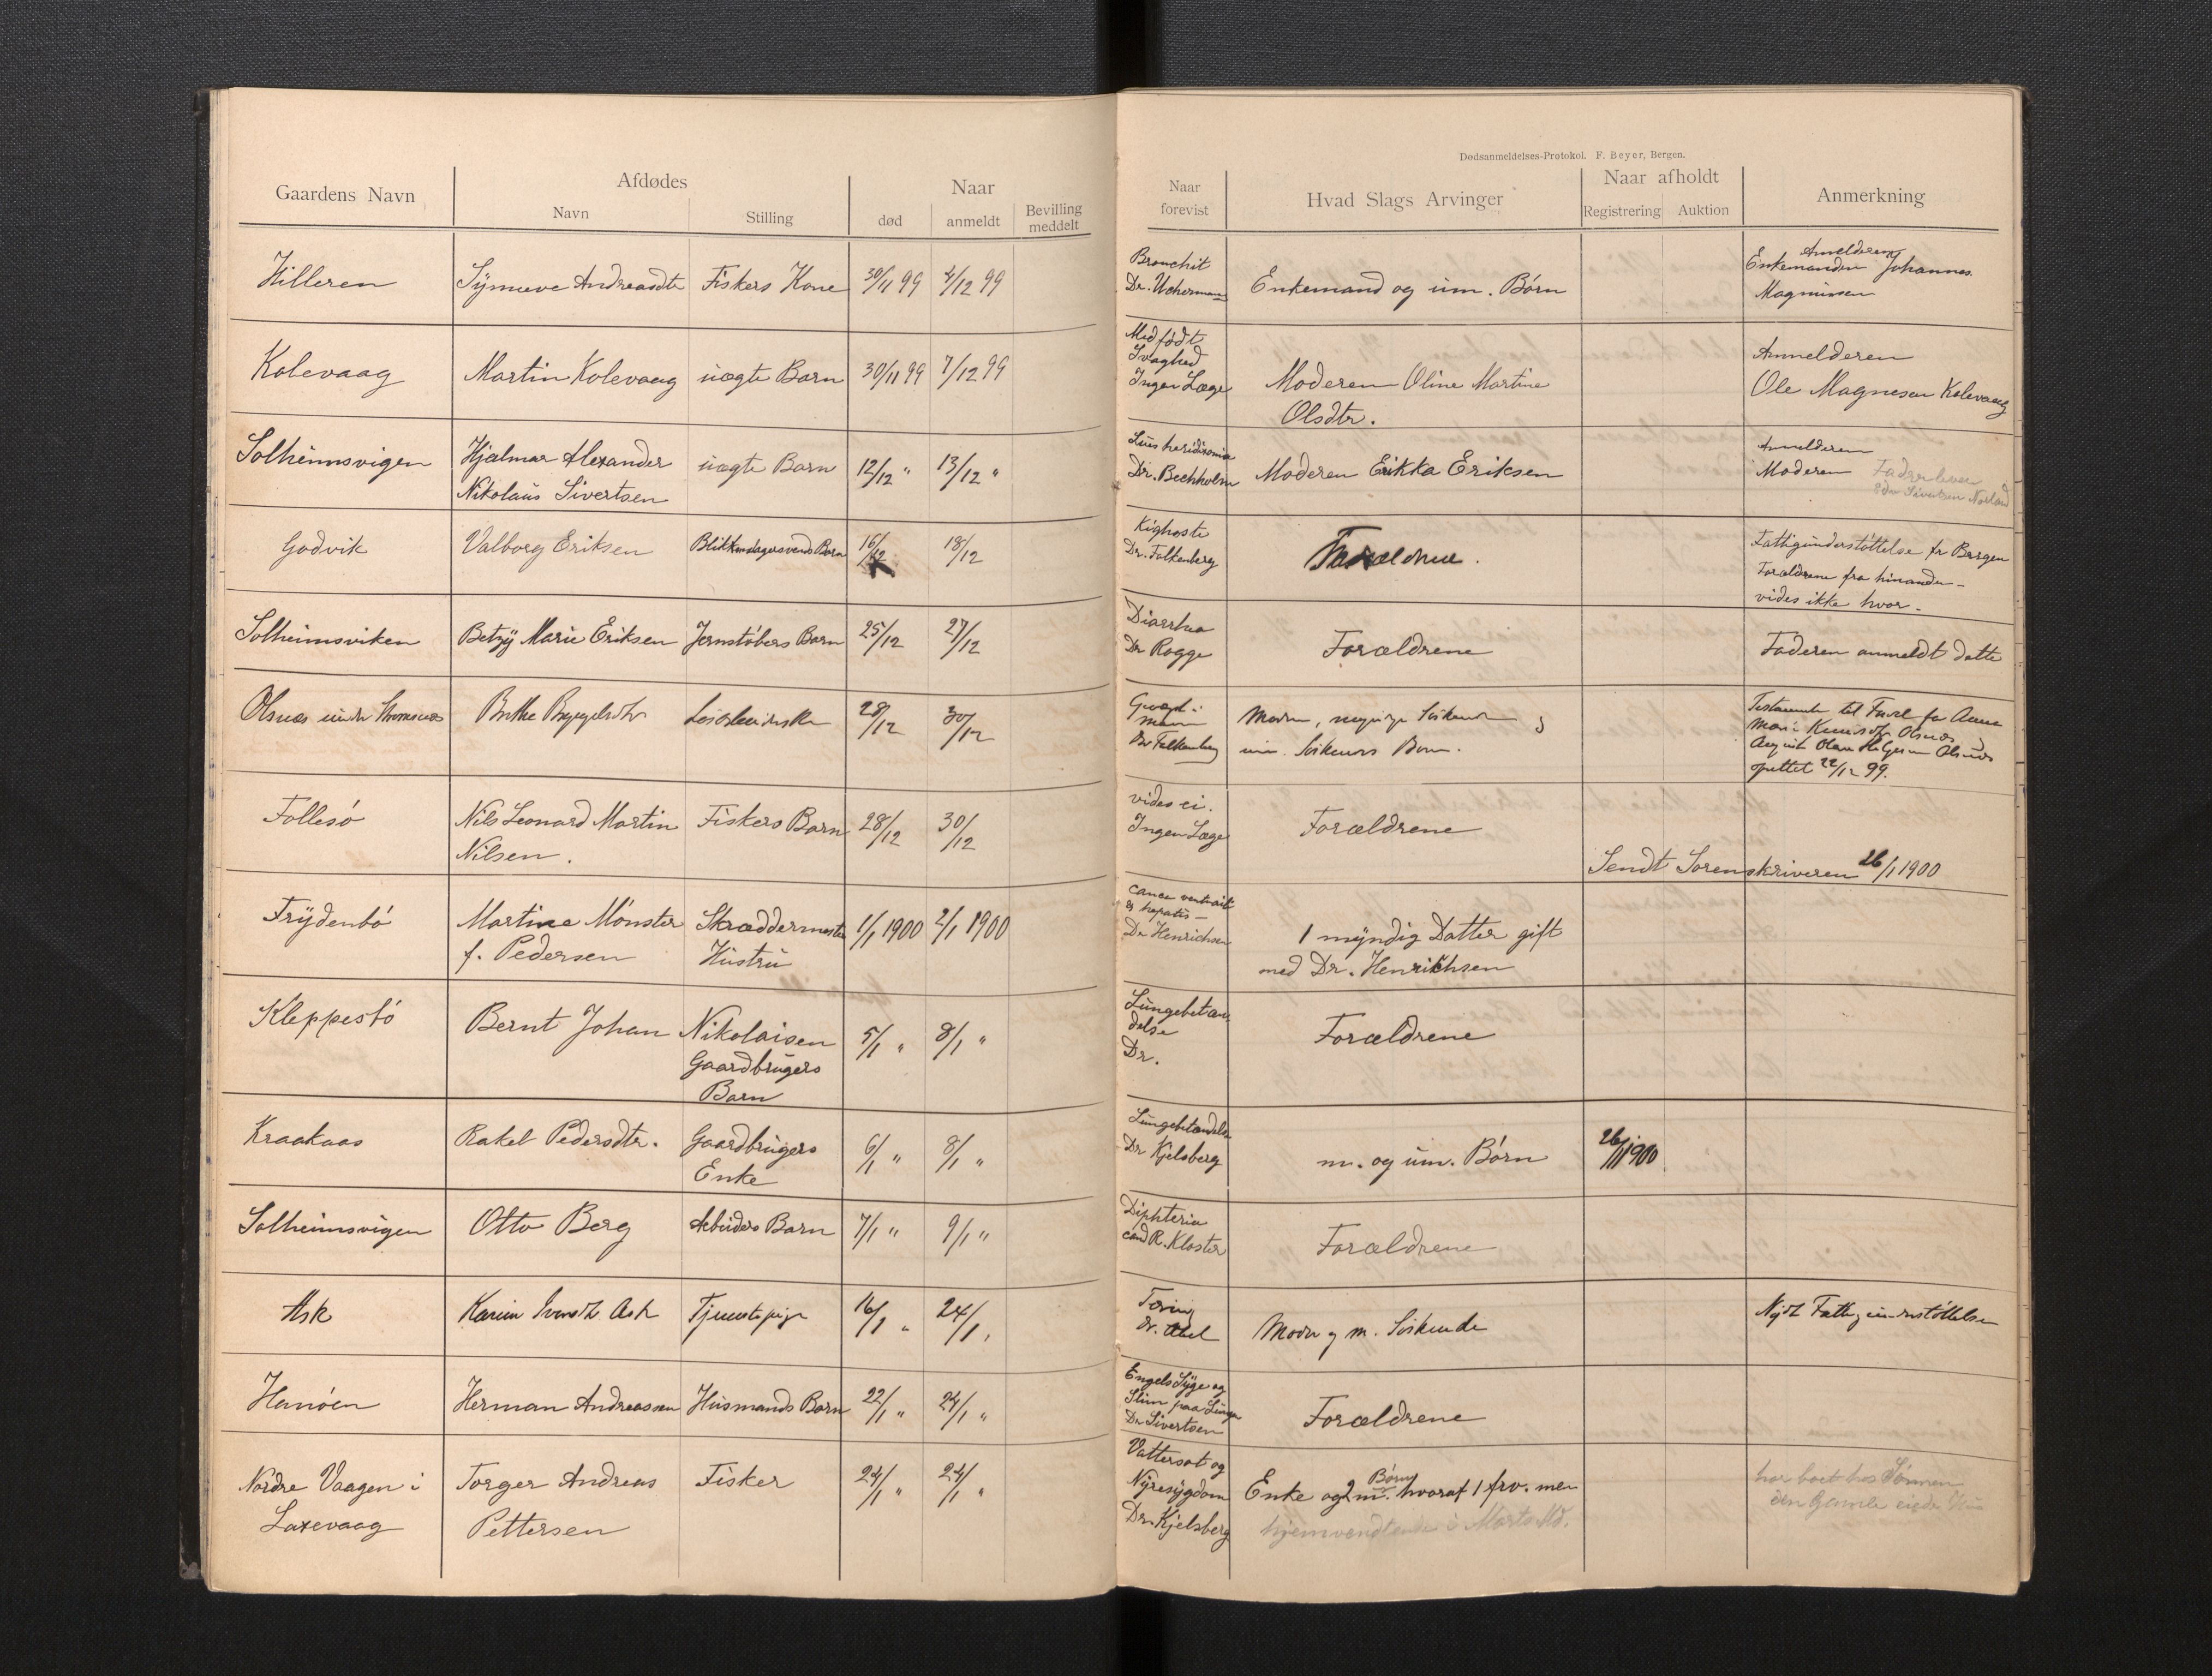 Dødsanmeldelses-Protokol. F. Beyer, Bergen.
Gaardens Navn
Afdødes
Navn
Stilling
Naar
død
anmeldt
Bevilling
meddelt
Naar
forevist
Hvad Slags Arvinger
Naar afholdt
Registrering
Auktion
Anmerkning
Hilleren
Synneve Andreasdtr
Fiskers Kone
30/11 99
4/12 99
Bronchit
Dr. Uchermann
Enkemand og um. Børn
Anmelderen
Enkemanden Johannes
Magnussen
Kolevaag
Martin Kolevaag
uægte Barn
30/11 99
7/12 99
Medfødt
Svaghed
Ingen Læge
Moderen Oline Martine
Olsdtr.
Anmelderen
Ole Magnesen Kolevaag
Solheimsvigen
Hjalmar Alexander
Nikolaus Sivertsen
uægte Barn
12/12 "
13/12 "
Dr. Bechholm
Moderen Erikka Eriksen
Anmelderen
Moderen
Faderen
Sivertsen
Godvik
Valborg Eriksen
Blikkenslagersvends Barn
16/12
18/12
Kighoste
Dr. Falkenberg
Forældrene.
Fattigunderstøttelse fr Bergen
Forældrene fra hinanden -
vides ikke hvor -
Solheimsviken
Betzy Marie Eriksen
Jernstøbers Barn
25/12
27/12
Diarrhea
Dr Rogge
Forældrene
Faderen anmeldt dette
Olsnæs under
Brithe
28/12
30/12
Dr Falkenberg
Moderen, Søskende
um. Søskendes Børn.
Testamente til for Anne
Marie Olsnæs
Olsnæs
22/12 99.
Follesø
Nils Leonard Martin
Nilsen.
Fiskers Barn
28/12
30/12
vides ei.
Ingen Læge
Forældrene
Sendt Sorenskriveren 26/1 1900
Frydenbø
Martine Mønster
f. Pedersen
Skræddermester
Hustru
1/1 1900
2/1 1900
cancer
hepatis -
Dr Henrichsen
1 myndig Datter gift
med Dr. Henrichsen
Kleppestø
Bernt Johan
Nikolaisen
Gaardbrugers
Barn
5/1 "
8/1 "
Lungebetæn-
delse
Dr.
Forældrene
Kraakaas
Rakel Pedersdtr.
Gaardbrugers
Enke
6/1 "
8/1 "
Lungebetændelse
Dr Kjelsberg
m. og um. Børn
26/1 1900
Solheimsvigen
Otto Berg
Arbeiders Barn
7/1 "
9/1 "
Diphteria
cand R. Kloster
Forældrene
Ask
Karen Ask
Tjenestepige
16/1 "
24/1 "
Tæring
Dr. Abel
Moder og m. Søskende
Nydt Fattigunderstøttelse
Hanøen
Herman Andreassen
Husmands Barn
22/1 "
24/1 "
Engelsksyge og
Slim paa Lunge
Dr Sivertsen
Forældrene
Nordre Vaagen i
Laxevaag
Torger Andreas
Pettersen
Fisker
24/1 "
24/1 "
Vattersot og
Nyresygdom
Dr. Kjelsberg
Enke og 2 m. Børn hvoraf 1 frv. men
hjemvendtende i Marts Md.
har boet hos Sønnen
den Gamle eiede Hus